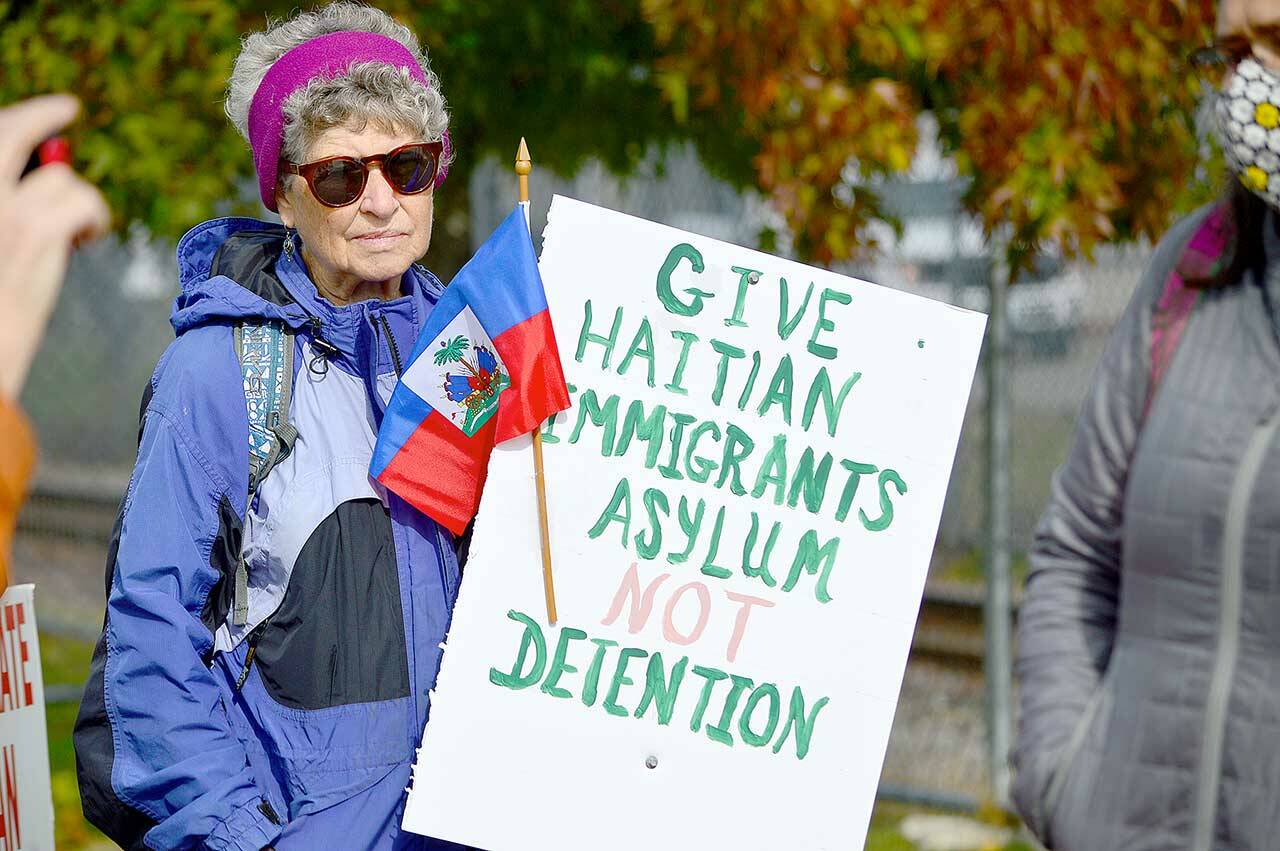 GIVE
HAITIAN
IMMIGRANTS
ASYLUM
NOT
DETENTION